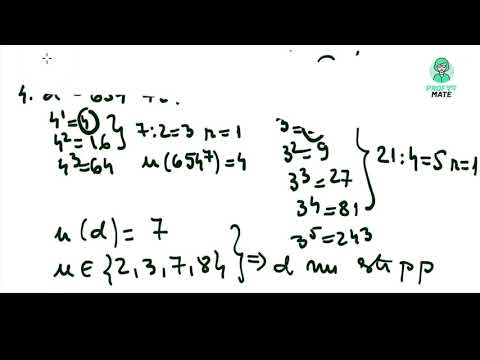 PROFYT
MATE
4.
4¹=4
4²=16
4³=64
7:2=3 r=1
u(654⁷)=4
3²=9
3³=27
3⁴=81
3⁵=243
21:4=5 r=1
u(d)=7
u∈{2,3,7,8} ⇒ d nu
pp